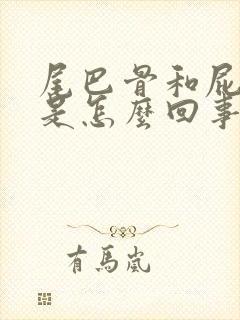 尾巴骨和屁
是怎麼回事
有馬嵐